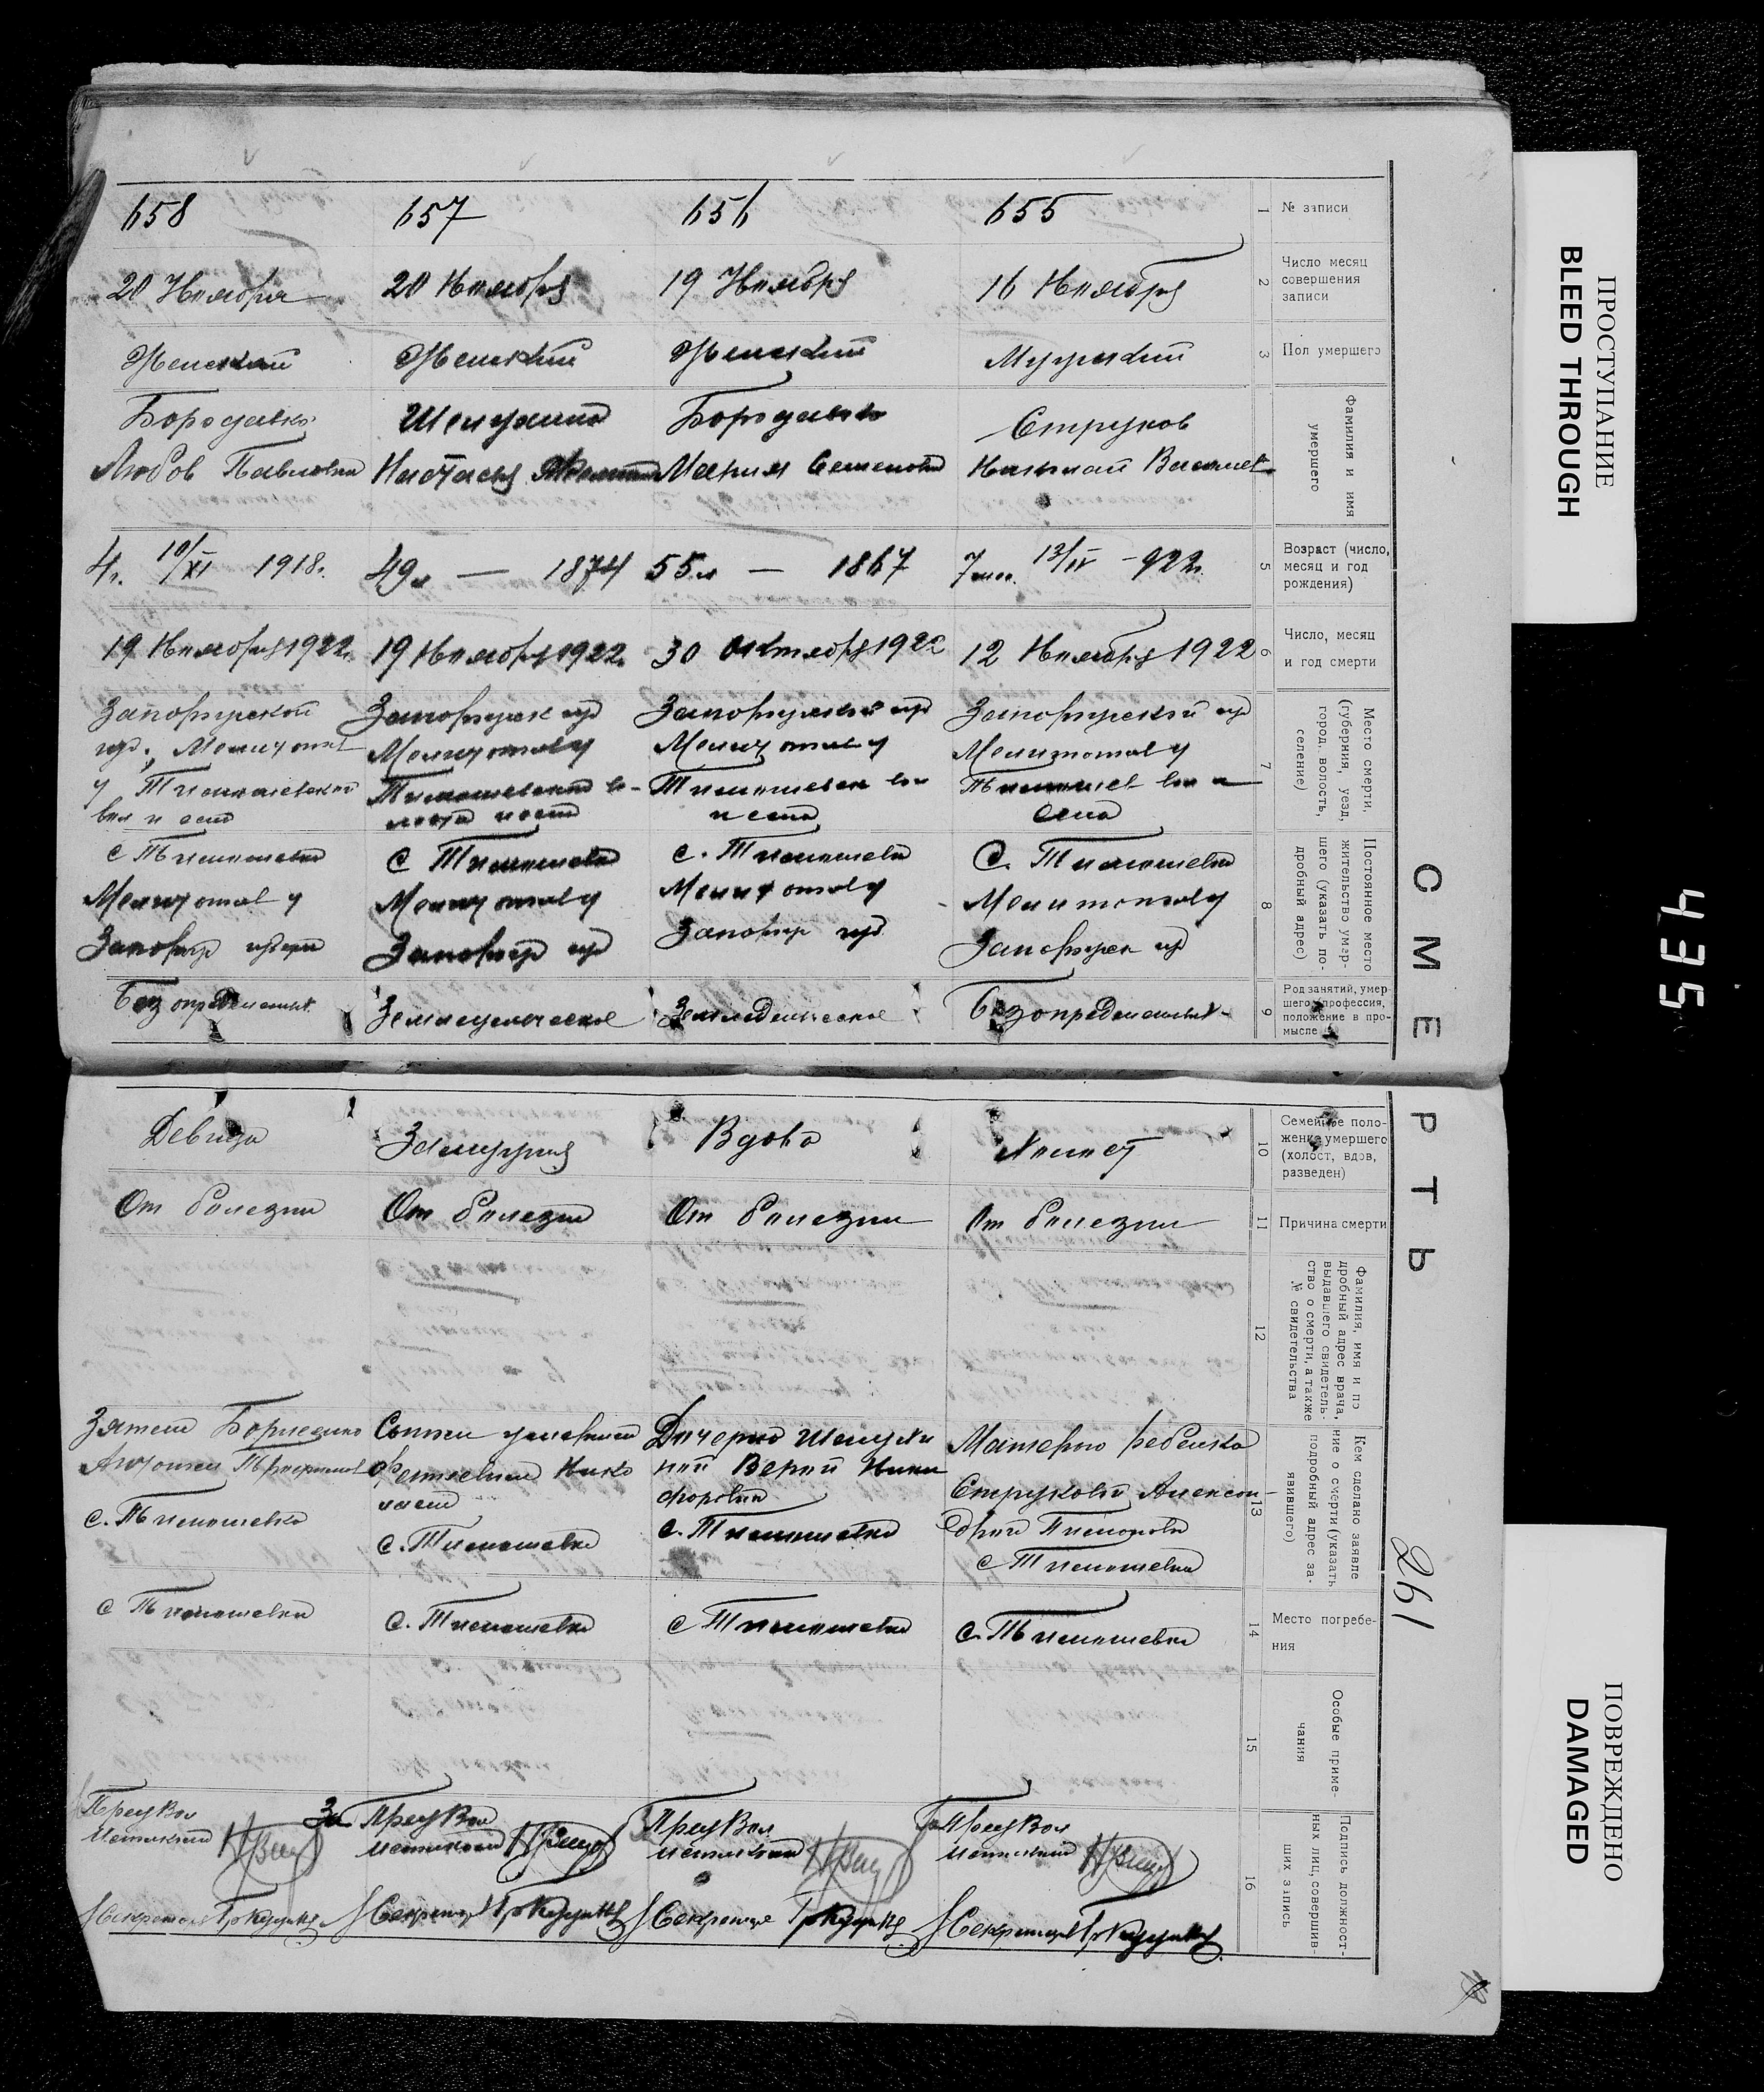 ПРОСТУПАНИЕ
BLEED THROUGH
435
ПОВРЕЖДЕНО
DAMAGED
СМЕРТЬ
261
1 № записи
655
656
657
658
2 Число месяц
совершения
записи
16 Ноября
19 Ноября
20 Ноября
20 Ноября
3 Пол умершего
Мужский
Женский
Женский
Женский
Фамилия и имя
умершего
Струков
Николай Васил
Бородавко
Мария Семеновна
Настасья
Бородавко
Любов Павловна
5 Возраст (число,
месяц и год
рождения)
7 мес. 13/IV -922г.
55 л — 1867
49 л — 1874
4 г. 10/XI 1918 г.
6 Число, месяц
и год смерти
12 Ноября 1922
30 Октября 1922
19 Ноября 1922г.
19 Ноября 1922г.
7 Место смерти,
(губерния, уезд,
город, волость,
селение)
Запорожской гуд
Мелитопол у
Тимошев вол и
села
Запорожской гуд
Мелитопол у
Тимошевск вол
и села
Запорожск гуд
Мелитопол у
Запорожской
губ., Мелитопол
у Тимошевской
вол и села
8 Постоянное место
жительство умер-
шего (указать по-
дробный адрес)
С. Тимошевка
Мелитопол у
Запорожск гуд
с. Тимошевка
Мелитопол у
Запорож губ
С Тимошевка
Мелитопол у
Запорож гуд
с Тимошевка
Мелитопол у
Запорож
9 Род занятий, умер-
шего (профессия,
положение в про-
мысле
Без определенных
Земледельческое
Земледельческое
Без определенных
10 Семейное поло-
жение умершего
(холост, вдов,
разведен)
Холост
Вдова
Замужняя
Девица
11 Причина смерти
От болезни
От болезни
От болезни
От болезни
12 Фамилия, имя и по
дробный адрес врача,
выдавшего свидетель-
ство о смерти, а также
№ свидетельства
13 Кем сделано заявле
ние о смерти (указать
подробный адрес за-
явившего)
Матерью ребенка
Струковой Алексан-
дрой
с Тимошевка
Дочерью
Верой Ники
форовна
с. Тимошевка
Сыном
Нико
лаем
с. Тимошевка
Зятем
с. Тимошевка
14 Место погребе-
ния
с. Тимошевка
с Тимошевка
с. Тимошевка
с Тимошевка
15 Особые приме-
чания
16 Подпись должност-
ных лиц, совершив-
ших запись
Пред Вол
исполкома
Секретарь
Пред Вол
исполкома
Секретарь
За Пред Вол
исполкома
Секретарь
Пред Вол
исполкома
Секретарь